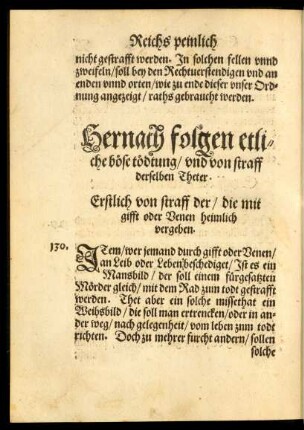 Reichs peinlich
nicht gestrafft werden. In solchen fellen vnnd
zweifeln/soll bey den Rechtuerstendigen vnd an
enden vnnd orten/wie zu ende dieser vnser Ord-
nung angezeigt/raths gebraucht werden.
Hernach folgen etli-
che böse tödtung/vnd von straff
derselben Theter.
Erstlich von straff der/die mit
gifft oder Venen heimlich
vergeben.
130. ITem/wer jemand durch gifft oder Venen/
an Leib oder Leben beschediget/Ist es ein
Mansbild/der soll einem fürgesatzten
Mörder gleich/mit dem Rad zum todt gestrafft
werden. Thet aber ein solche missethat ein
Weibsbild/die soll man ertrencken/oder in an-
der weg/nach gelegenheit/vom leben zum todt
richten. Doch zu mehrer furcht andern/sollen
solche